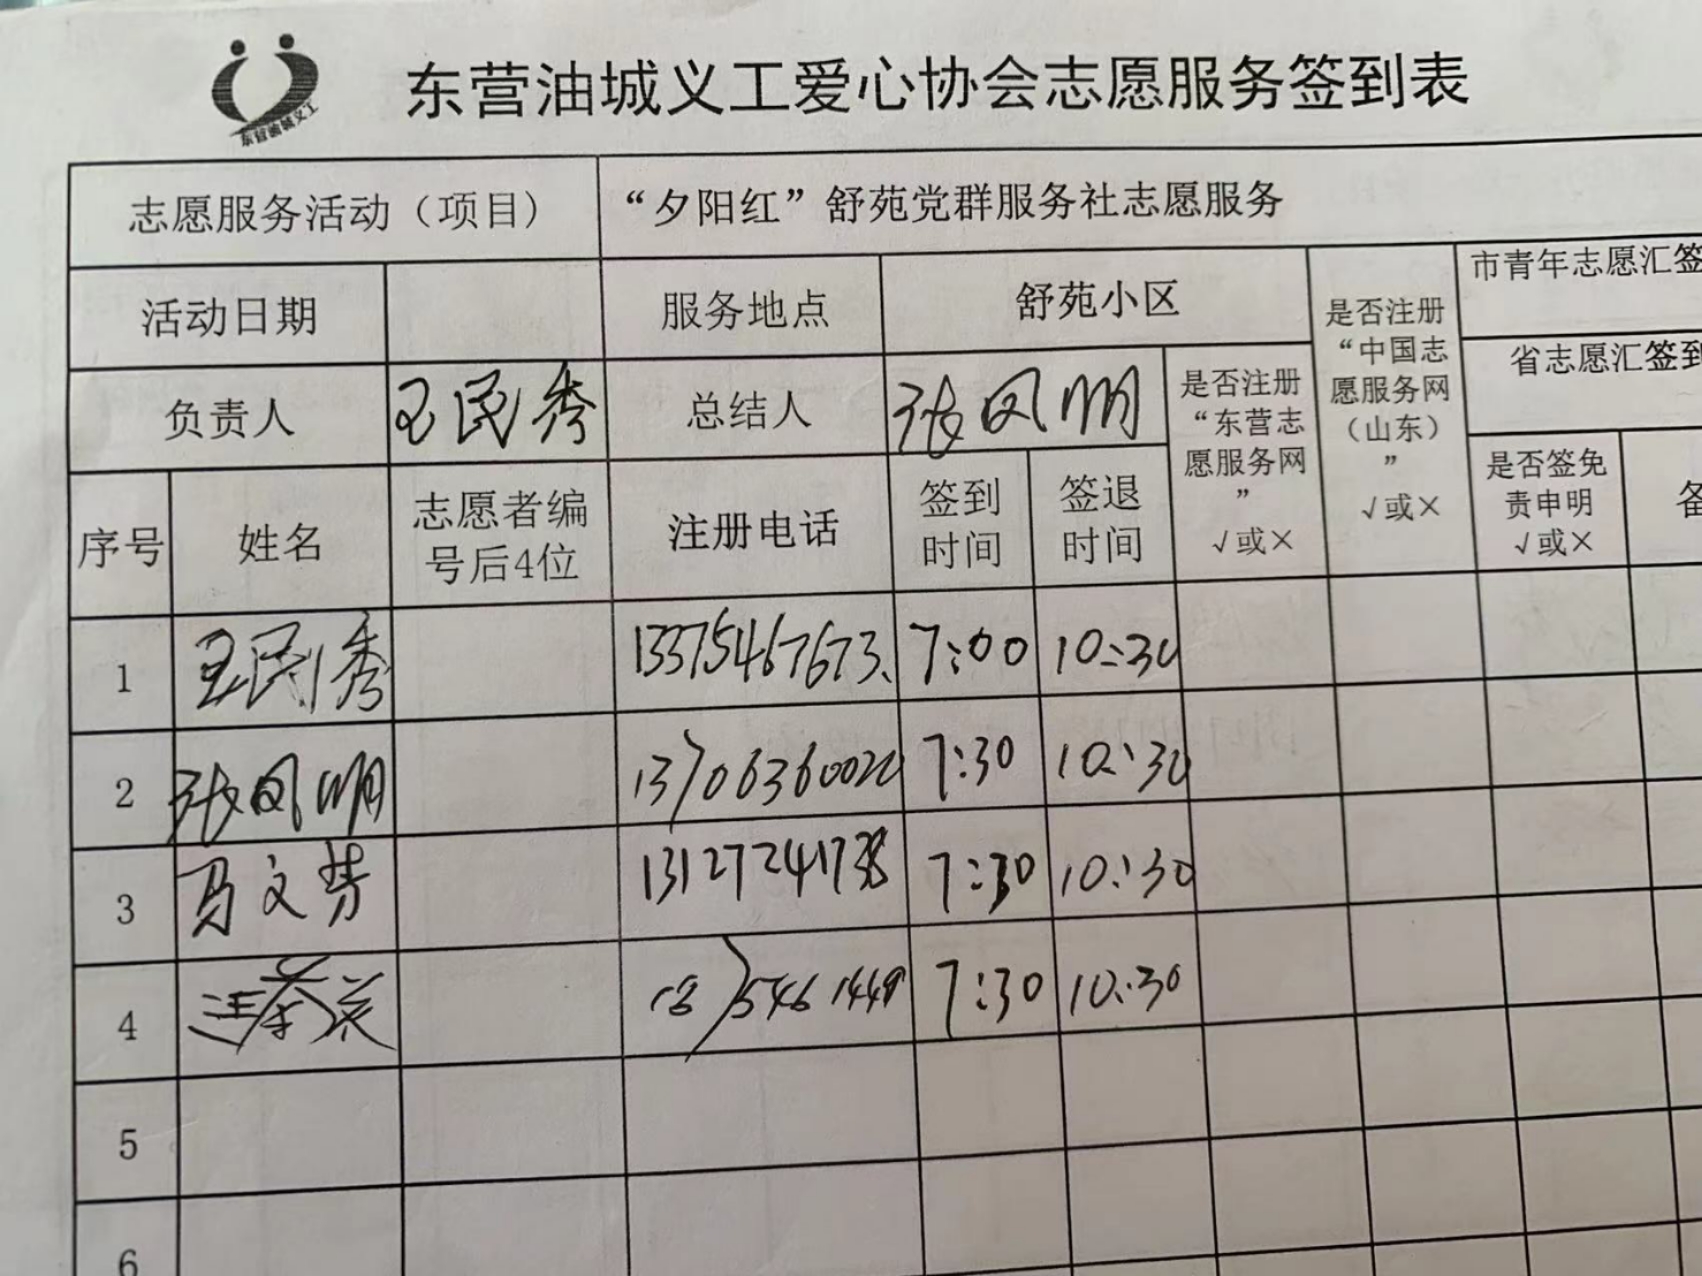 东营油城义工
东营油城义工爱心协会志愿服务签到表
志愿服务活动（项目） “夕阳红”舒苑党群服务社志愿服务
活动日期 服务地点 舒苑小区
负责人 王民秀 总结人 张凤明
是否注册“东营志愿服务网” √或×
是否注册“中国志愿服务网（山东）” √或×
市青年志愿汇签
省志愿汇签到
是否签免责申明 √或×
序号 姓名 志愿者编号后4位 注册电话 签到时间 签退时间
1 王民秀 13375467673 7:00 10:30
2 张凤明 13706360020 7:30 10:30
3 马文芳 7:30 10:30
4 7:30 10:30
5
6